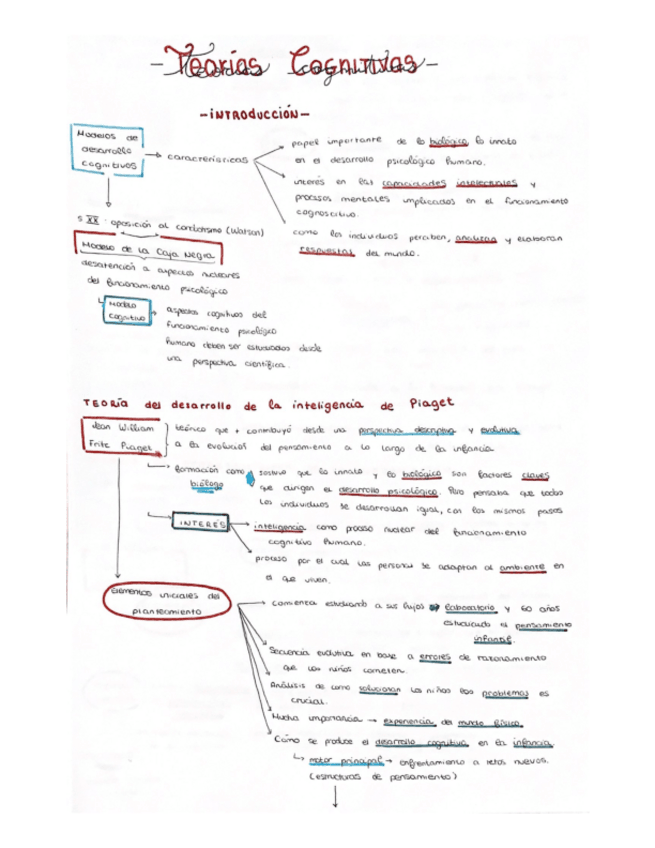 -Teorías Cognitivas-
-INTRODUCCIÓN-
Modelos de
desarrollo
cognitivos
características
papel importante de lo biológico, lo innato
en el desarrollo psicológico humano.
interés en las capacidades intelectuales y
procesos mentales implicados en el funcionamiento
cognoscitivo.
como los individuos perciben, analizan y elaboran
respuestas del mundo.
S.XX. oposición al conductismo (Watson)
Modelo de la Caja Negra
desatención a aspectos nucleares
del funcionamiento psicológico
Modelo
Cognitivo
aspectos cognitivos del
funcionamiento psicológico
humano deben ser estudiados desde
una perspectiva científica.
TEORÍA del desarrollo de la inteligencia de Piaget
Jean William
Fritz Piaget
teórico que + contribuyó desde una perspectiva descriptiva y evolutiva
a la evolución del pensamiento a lo largo de la infancia
formación como
biólogo
sostuvo que lo innato y lo biológico son factores claves
que dirigen el desarrollo psicológico. Pero pensaba que todos
los individuos se desarrollan igual, con los mismos pasos
INTERÉS
inteligencia como proceso nuclear del funcionamiento
cognitivo humano.
proceso por el cual las personas se adaptan al ambiente en
el que viven.
Elementos iniciales del
planteamiento
comienza estudiando a sus hijos laboratorio y 60 años
estudiando el pensamiento
infantil.
Secuencia evolutiva en base a errores de razonamiento
que los niños cometen.
Análisis de como solucionan los niños los problemas es
crucial.
Mucha importancia → experiencia del mundo físico
Cómo se produce el desarrollo cognitivo en la infancia
↳ motor principal → enfrentamiento a retos nuevos.
(estructuras de pensamiento)